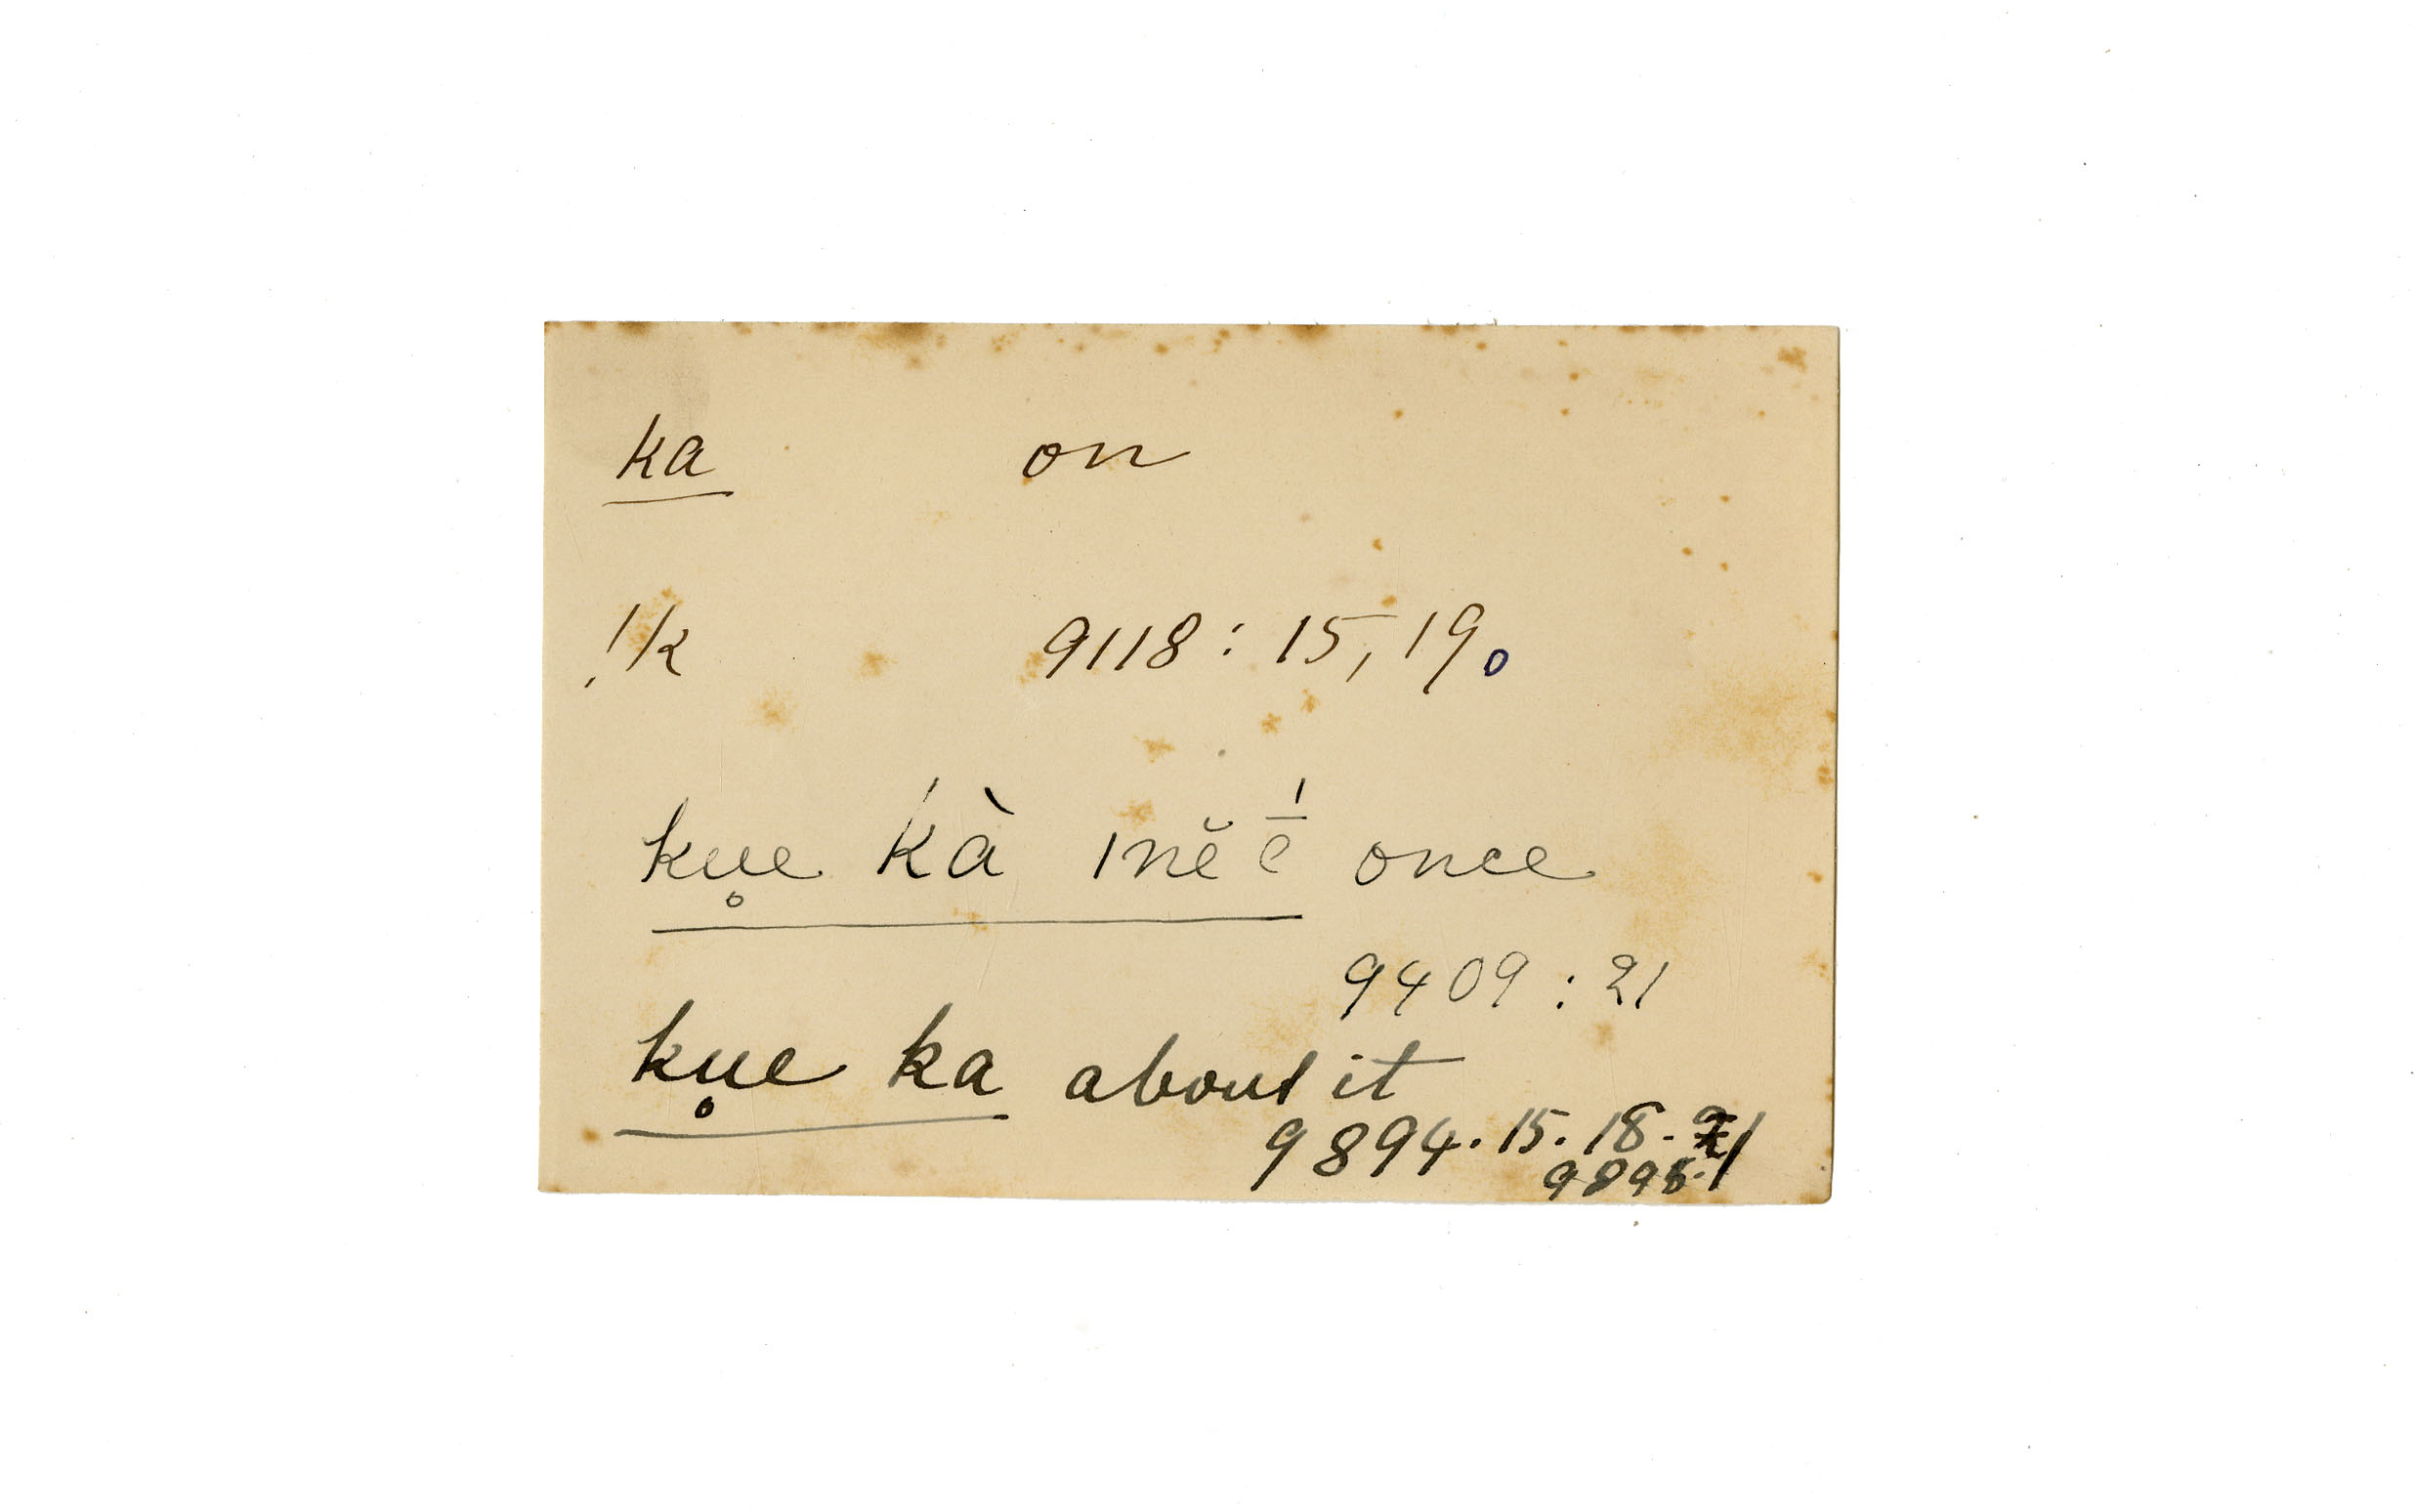 ka on
!k 9118 : 15, 19.
kụe kà ǀnĕ é̄ once
9409 : 21
kụe ka about it
9894. 15. 18. 21
9895.1